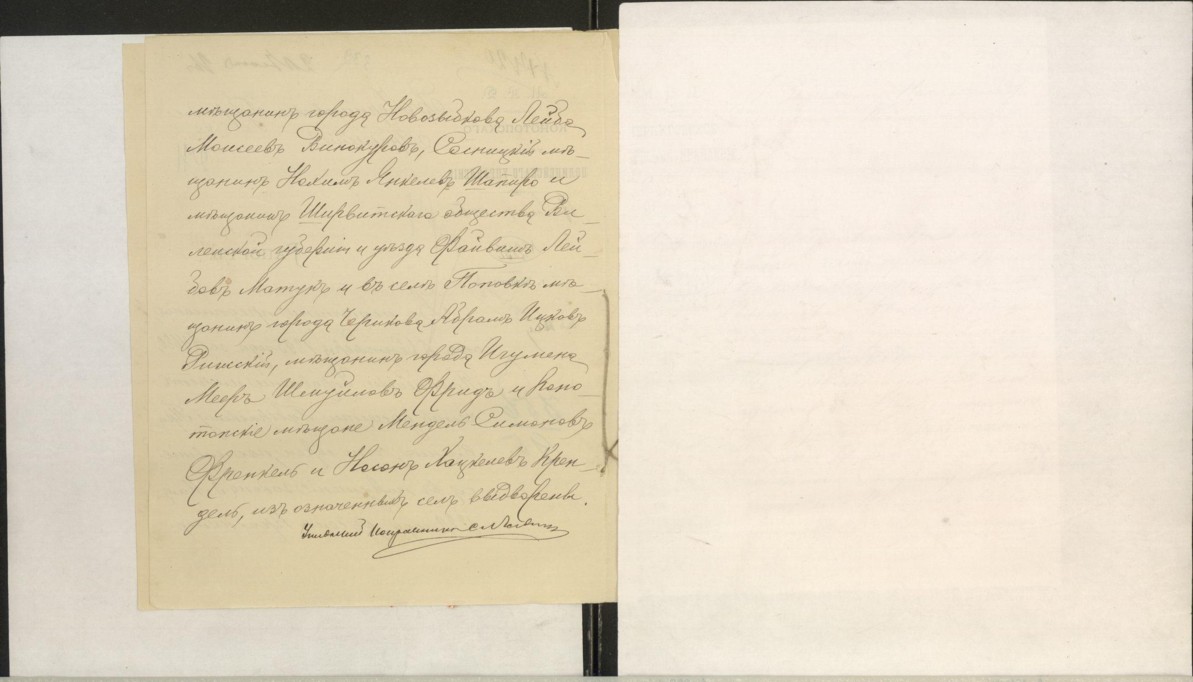 мѣщанинъ города Новозыбкова Лейба
Моисеевъ Винокуровъ, Сосницкій мѣ-
щанинъ Нохимъ Янкелевъ Шапиро и
мѣщанинъ Ширвитскаго общества Ви-
ленской губерніи и уѣзда Файвишъ Лей-
бовъ Матукъ и въ селѣ Поповкѣ мѣ-
щанинъ города Черикова Абрамъ Ицковъ
Рижскій, мѣщанинъ города Игумена
Мееръ Шмуйловъ Фридъ и Коно-
топскіе мѣщане Мендель Симоновъ
Френкель и Носонъ Хацкелевъ Крен-
дель, изъ означенныхъ селъ выдворены.
Уѣздный Исправникъ
КОНОТОПСКАГО